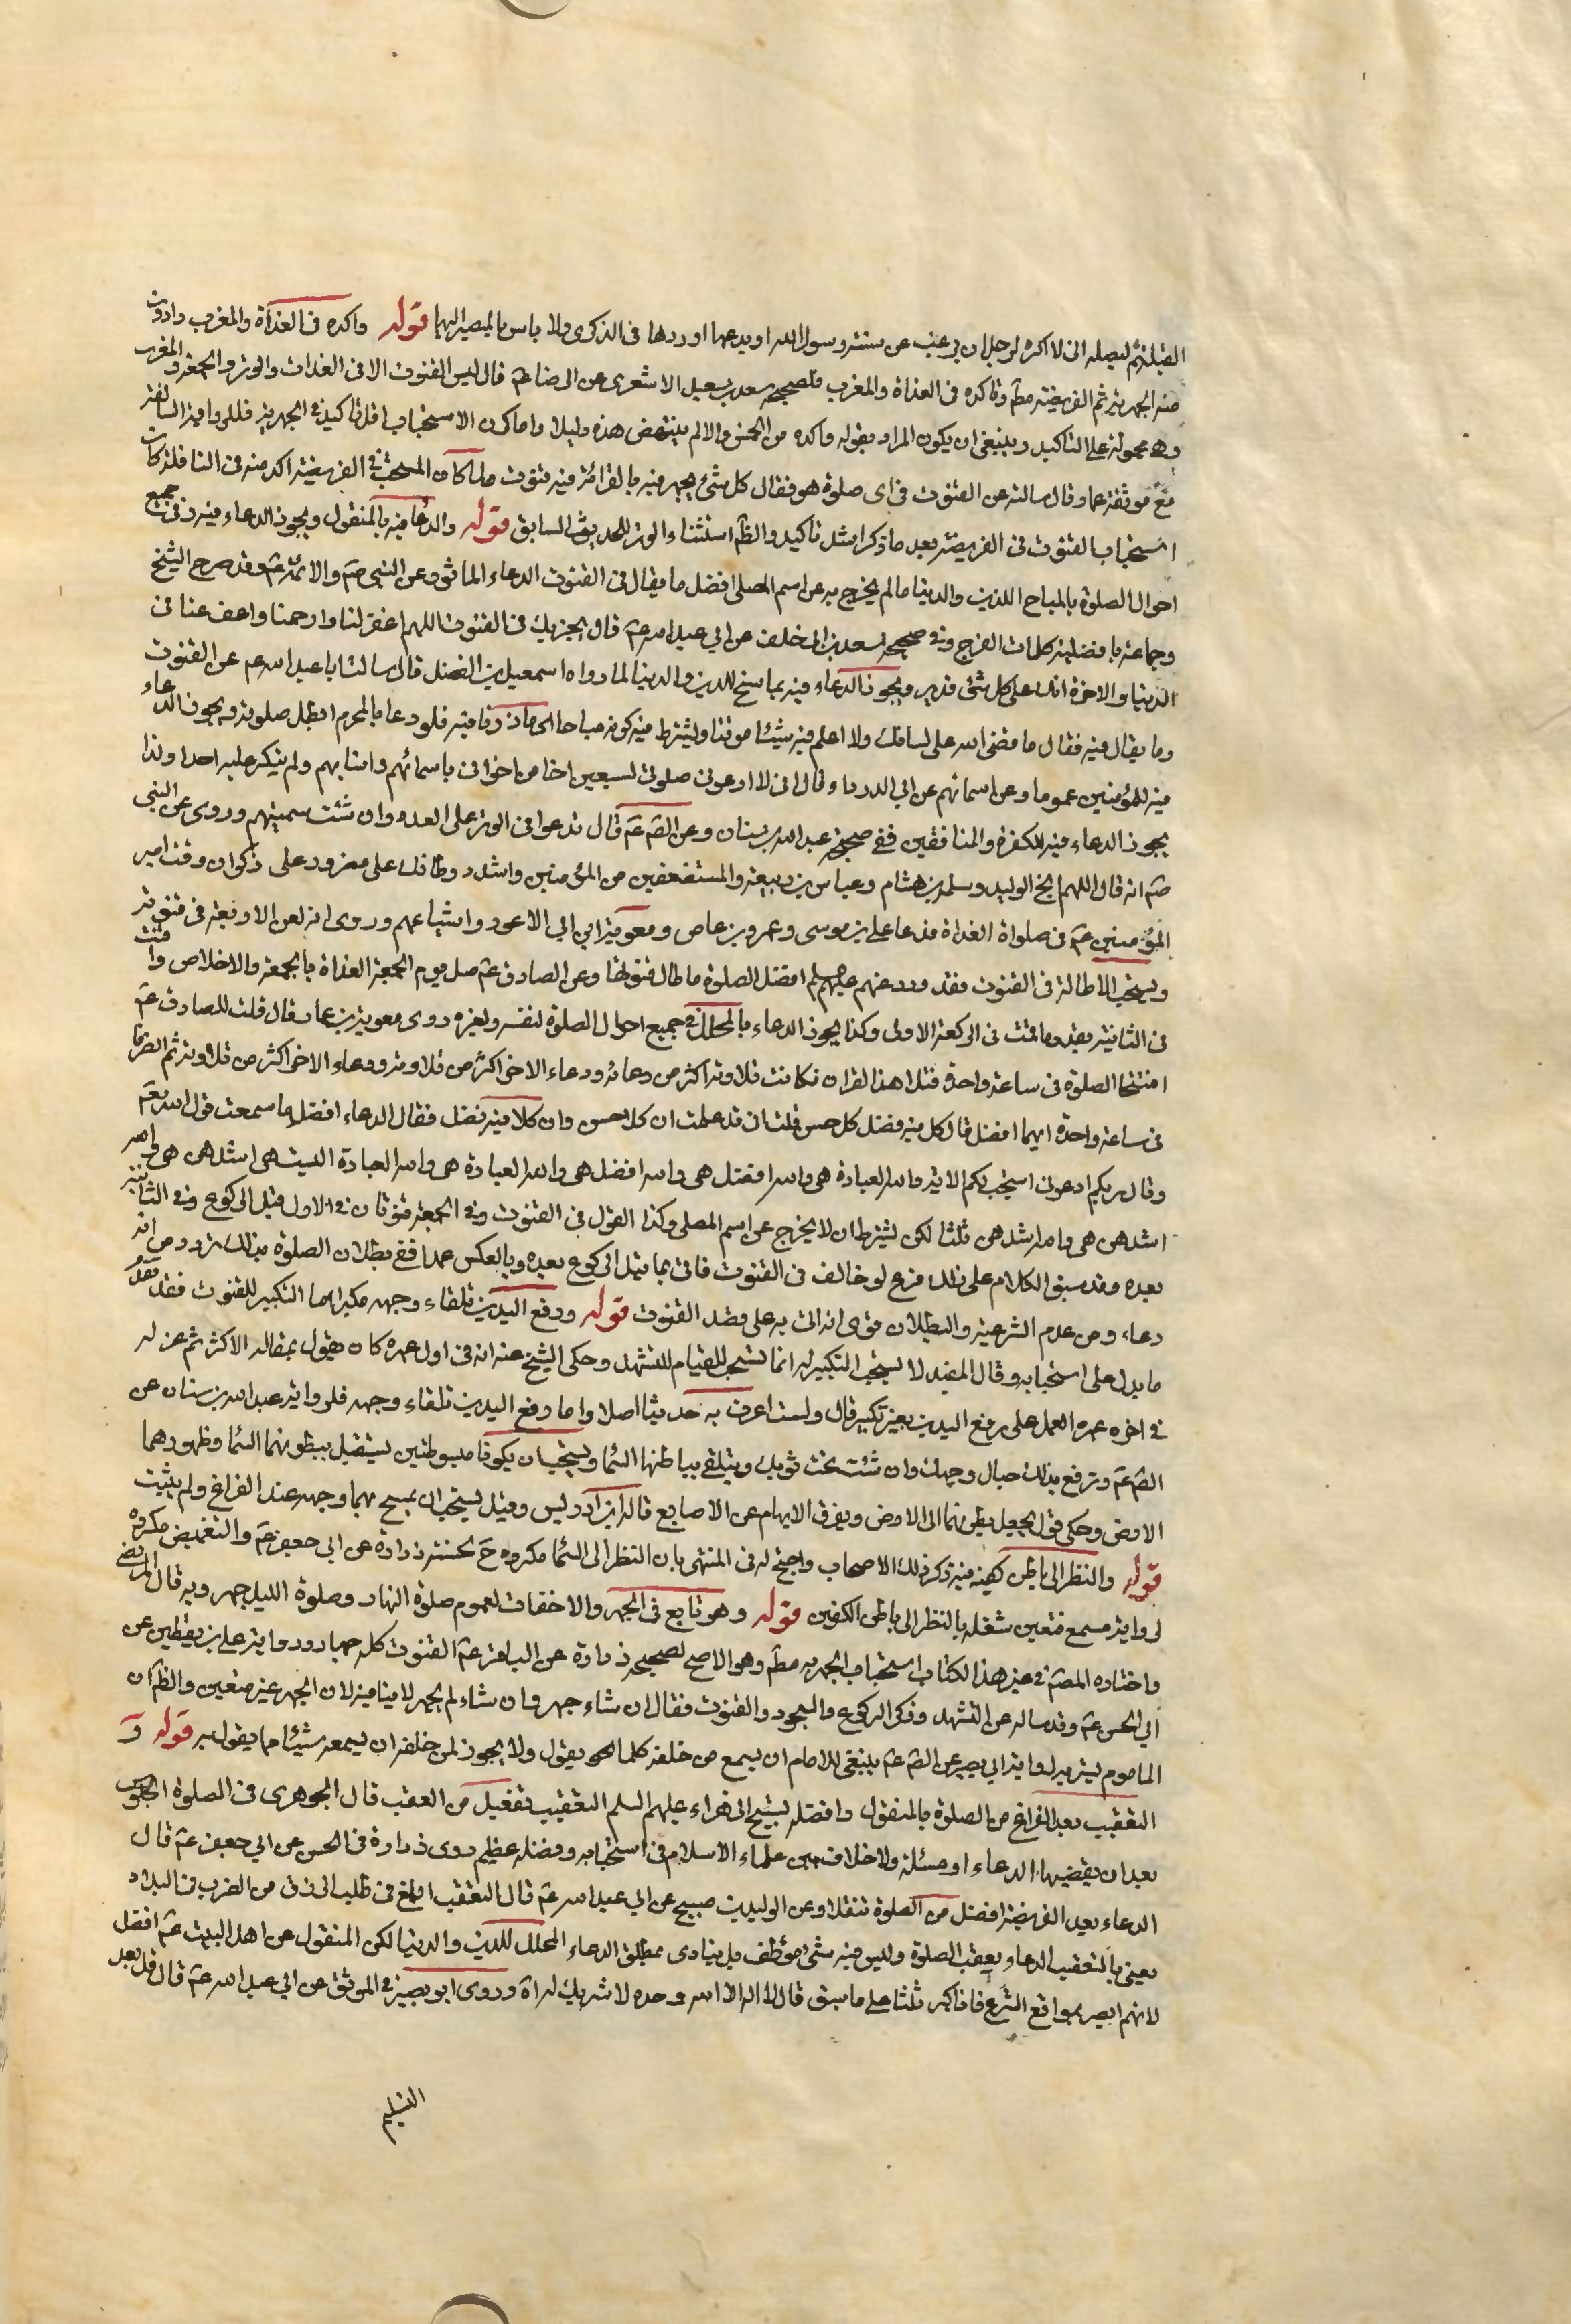 القبلة ثم ليصله انى لا اكره لرجل ان يرغب عن سنته رسول الله او يدعها اوردها فى الذكرى ولا باس بالمصير اليهما قوله واكده فى الغداة والمغرب وادون
منه الجهرية ثم الفريضة مطم وتاكده فى الغداة والمغرب فلصحيحه سعد بن سعيد الاشعرى عن الرضا عم قال ليس القنوت الا فى الغداة والوتر والجمعة والمغرب
وهى محمولة على التاكيد وينبغى ان يكون المراد بقوله واكده من الخمس والا لم ينتهض هذه دليلا واما كون الاستحباب اقل تاكيد فى الجهرية فللروايه السالفة
مع موثقة عمار قال سالته عن القنوت فى اى صلوة هو فقال كل شئ يجهر فيه بالقرائة فيه قنوت ولما كان المستحب فى الفريضة اكد منه فى النافلة كان
استحباب القنوت فى الفريضة بعد ما ذكر اشد تاكيد والظم استثناء الوتر للحديث السابق قوله والدعا فيه بالمنقول ويجوز الدعاء فيه وفى جميع
احوال الصلوة بالمباح للدين والدنيا ما لم يخرج به عن اسم المصلى افضل ما يقال فى القنوت الدعاء الماثور عن النبى صم والائمة عم وقد صرح الشيخ
وجماعة بافضلية كلمات الفرج وفى صحيحه سعد بن ابى خلف عن ابى عبد الله عم قال يجزيك فى القنوت اللهم اغفر لنا وارحمنا واعف عنا فى
الدنيا والاخرة انك على كل شئ قدير ويجوز الدعاء فيه بما سنح للدين والدنيا لما رواه اسمعيل بن الفضل قال سالت ابا عبد الله عم عن القنوت
وما يقال فيه فقال ما قضى الله على لسانك ولا اعلم فيه شيئا موقتا ويشترط فيه كونه مباحا اى ماذونا فيه فلو دعا بالمحرم ابطل صلوته ويجوز الدعاء
فيه للمؤمنين عموما وعن اسمائهم عن ابى الدرداء وقال انى لا ادعو فى صلوتى لسبعين اخا من اخوانى باسمائهم وانسابهم ولم ينكر عليه احدا وكذا
يجوز الدعاء فيه للكفرة والمنافقين ففى صحيحه عبد الله بن سنان وعن الصم عم قال تدعو فى الوتر على العدو وان شئت سميتهم وروى عن النبى
صم انه قال اللهم انج الوليد وسلمة بن هشام وعياش بن ربيعة والمستضعفين من المؤمنين واشدد وطاتك على مضر ورعل على ذكوان وقنت امير
المؤمنين عم فى صلواة الغداة فدعا على بن موسى وعمرو بن عاص ومعوية ابن ابى الاعور واشياعهم وروى انه لعن الاربعة فى قنوته
ويستحب الاطالة فى القنوت فقد ورد عنهم عليهم السلم افضل الصلوة ما طال قنوتها وعن الصادق عم صل يوم الجمعة الغداة بالجمعة والاخلاص واقنت
فى الثانية بقدر ما قمت فى الركعة الاولى وكذا يجوز الدعاء بالمحلل فى جميع احوال الصلوة لنفسه ولغيره روى معوية بن عمار قال قلت للصادق عم
افتتحا الصلوة فى ساعة واحدة فتلا هذا القران فكانت تلاوته اكثر من دعائه ودعاء الاخر اكثر من تلاوته ودعاء الاخر اكثر من تلاوته ثم انصرفا
فى ساعة واحدة ايهما افضل قال كل فيه فضل كل حسن قلت انى قد علمت ان كلا حسن وان كلا فيه فضل فقال الدعاء افضل اما سمعت قول الله تعم
وقال ربكم ادعونى استجب لكم الاية والله العبادة هى والله افضل هى والله افضل هى والله العبادة هى والله العبادة اليست هى اشدهن هى والله
اشدهن هى والله اشدهن ثلثا لكن يشترط ان لا يخرج عن اسم المصلى وكذا القول فى القنوت وفى الجمعة قنوتان فى الاول قبل الركوع وفى الثانية
بعده وقد سبق الكلام على ذلك فرع لو خالف فى القنوت فاتى بما قبل الركوع بعده وبالعكس عمدا ففى بطلان الصلوة بذلك تردد من انه
دعاء ومن عدم الشرعية والبطلان قوى ان اتى به على قصد القنوت قوله ورفع اليدين تلقاء وجهه مكبرا اما التكبير للقنوت فقد تقدم
ما يدل على استحبابه وقال المفيد لا يستحب التكبير له انما تستحب للقيام للتشهد وحكى الشيخ عنه انه فى اول عمره كان يقول بمقاله الاكثر ثم عن له
فى اخره عمره العمل على رفع اليدين بغير تكبير قال ولست اعرف به حديثا اصلا واما رفع اليدين تلقاء وجهه فلرواية عبد الله بن سنان عن
الصم عم وترفع يديك حيال وجهك وان شئت تحت ثوبك ويتلقى بباطنها السما ويستحب ان يكونا مبسوطتين ليستقبل ببطونهما السما وظهورهما
الارض وحكى قول يجعل بطونهما الى الارض ويفرق الابهام عن الاصابع قاله ابن ادريس وقيل يستحب ان يمسح بهما وجهه عند الفراغ ولم يثبت
قوله والنظر الى باطن كفيه فيه ذكر ذلك الاصحاب واحتج له فى المنتهى بان النظر الى السما مكروه ح لحسنة زرارة عن ابى جعفر عم والتغميض مكروه
لرواية مسمع فتعين شغله بالنظر الى باطن الكفين قوله وهو تابع فى الجهر والاخفات لعموم صلوة النهار وصلوة الليل جهر وبه قال المرتضى
واختاره المصم فى غير هذا الكتاب استحباب الجهر به مطم وهو الاصح لصحيحه زرارة عن الباقر عم القنوت كله جهار ورواية على بن يقطين عن
ابى الحسن عم وقد ساله عن التشهد وذكر الركوع والسجود والقنوت فقال ان شاء جهر وان شاء لم يجهر لا ينافيه لان الجهر غير متعين والظم ان
الماموم يسر به لرواية ابى بصير عن الصم عم ينبغى للامام ان يسمع من خلفه كلما يقول ولا يجوز لمن خلفه ان يسمعه شيئا مما يقول سر قوله و
التعقيب بعد الفراغ من الصلوة بالمنقول وافضله تسبيح الزهراء عليهم السلم التعقيب تفعيل من العقب قال الجوهرى فى الصلوة الجلوس
بعد ان يقضيها الدعاء او مسئلة ولا خلاف بين علماء الاسلام فى استحبابه وفضله عظيم روى زرارة فى الحسن عن ابى جعفر عم قال
الدعاء بعد الفريضة افضل من الصلوة تنفلا وعن الوليد بن صبيح عن ابى عبد الله عم قال التعقيب ابلغ فى طلب الرزق من الضرب فى البلاد
يعنى بالتعقيب الدعاء بعقب الصلوة وليس فيه شئ مؤظف بل يتادى بمطلق الدعاء المحلل للدين والدنيا لكن المنقول عن اهل البيت عم افضل
لانهم ابصر بمواقع الشرع فاذا كبر ثلثا على ما سبق قال لا اله الا الله وحده لا شريك له اه وروى ابو بصير فى الموثق عن ابى عبد الله عم قال قل بعد
التسليم